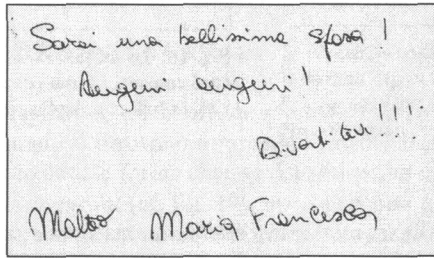 Sarai una bellissima sposa!
Auguri auguri!
Divertitevi!!
Matteo Maria Francesca